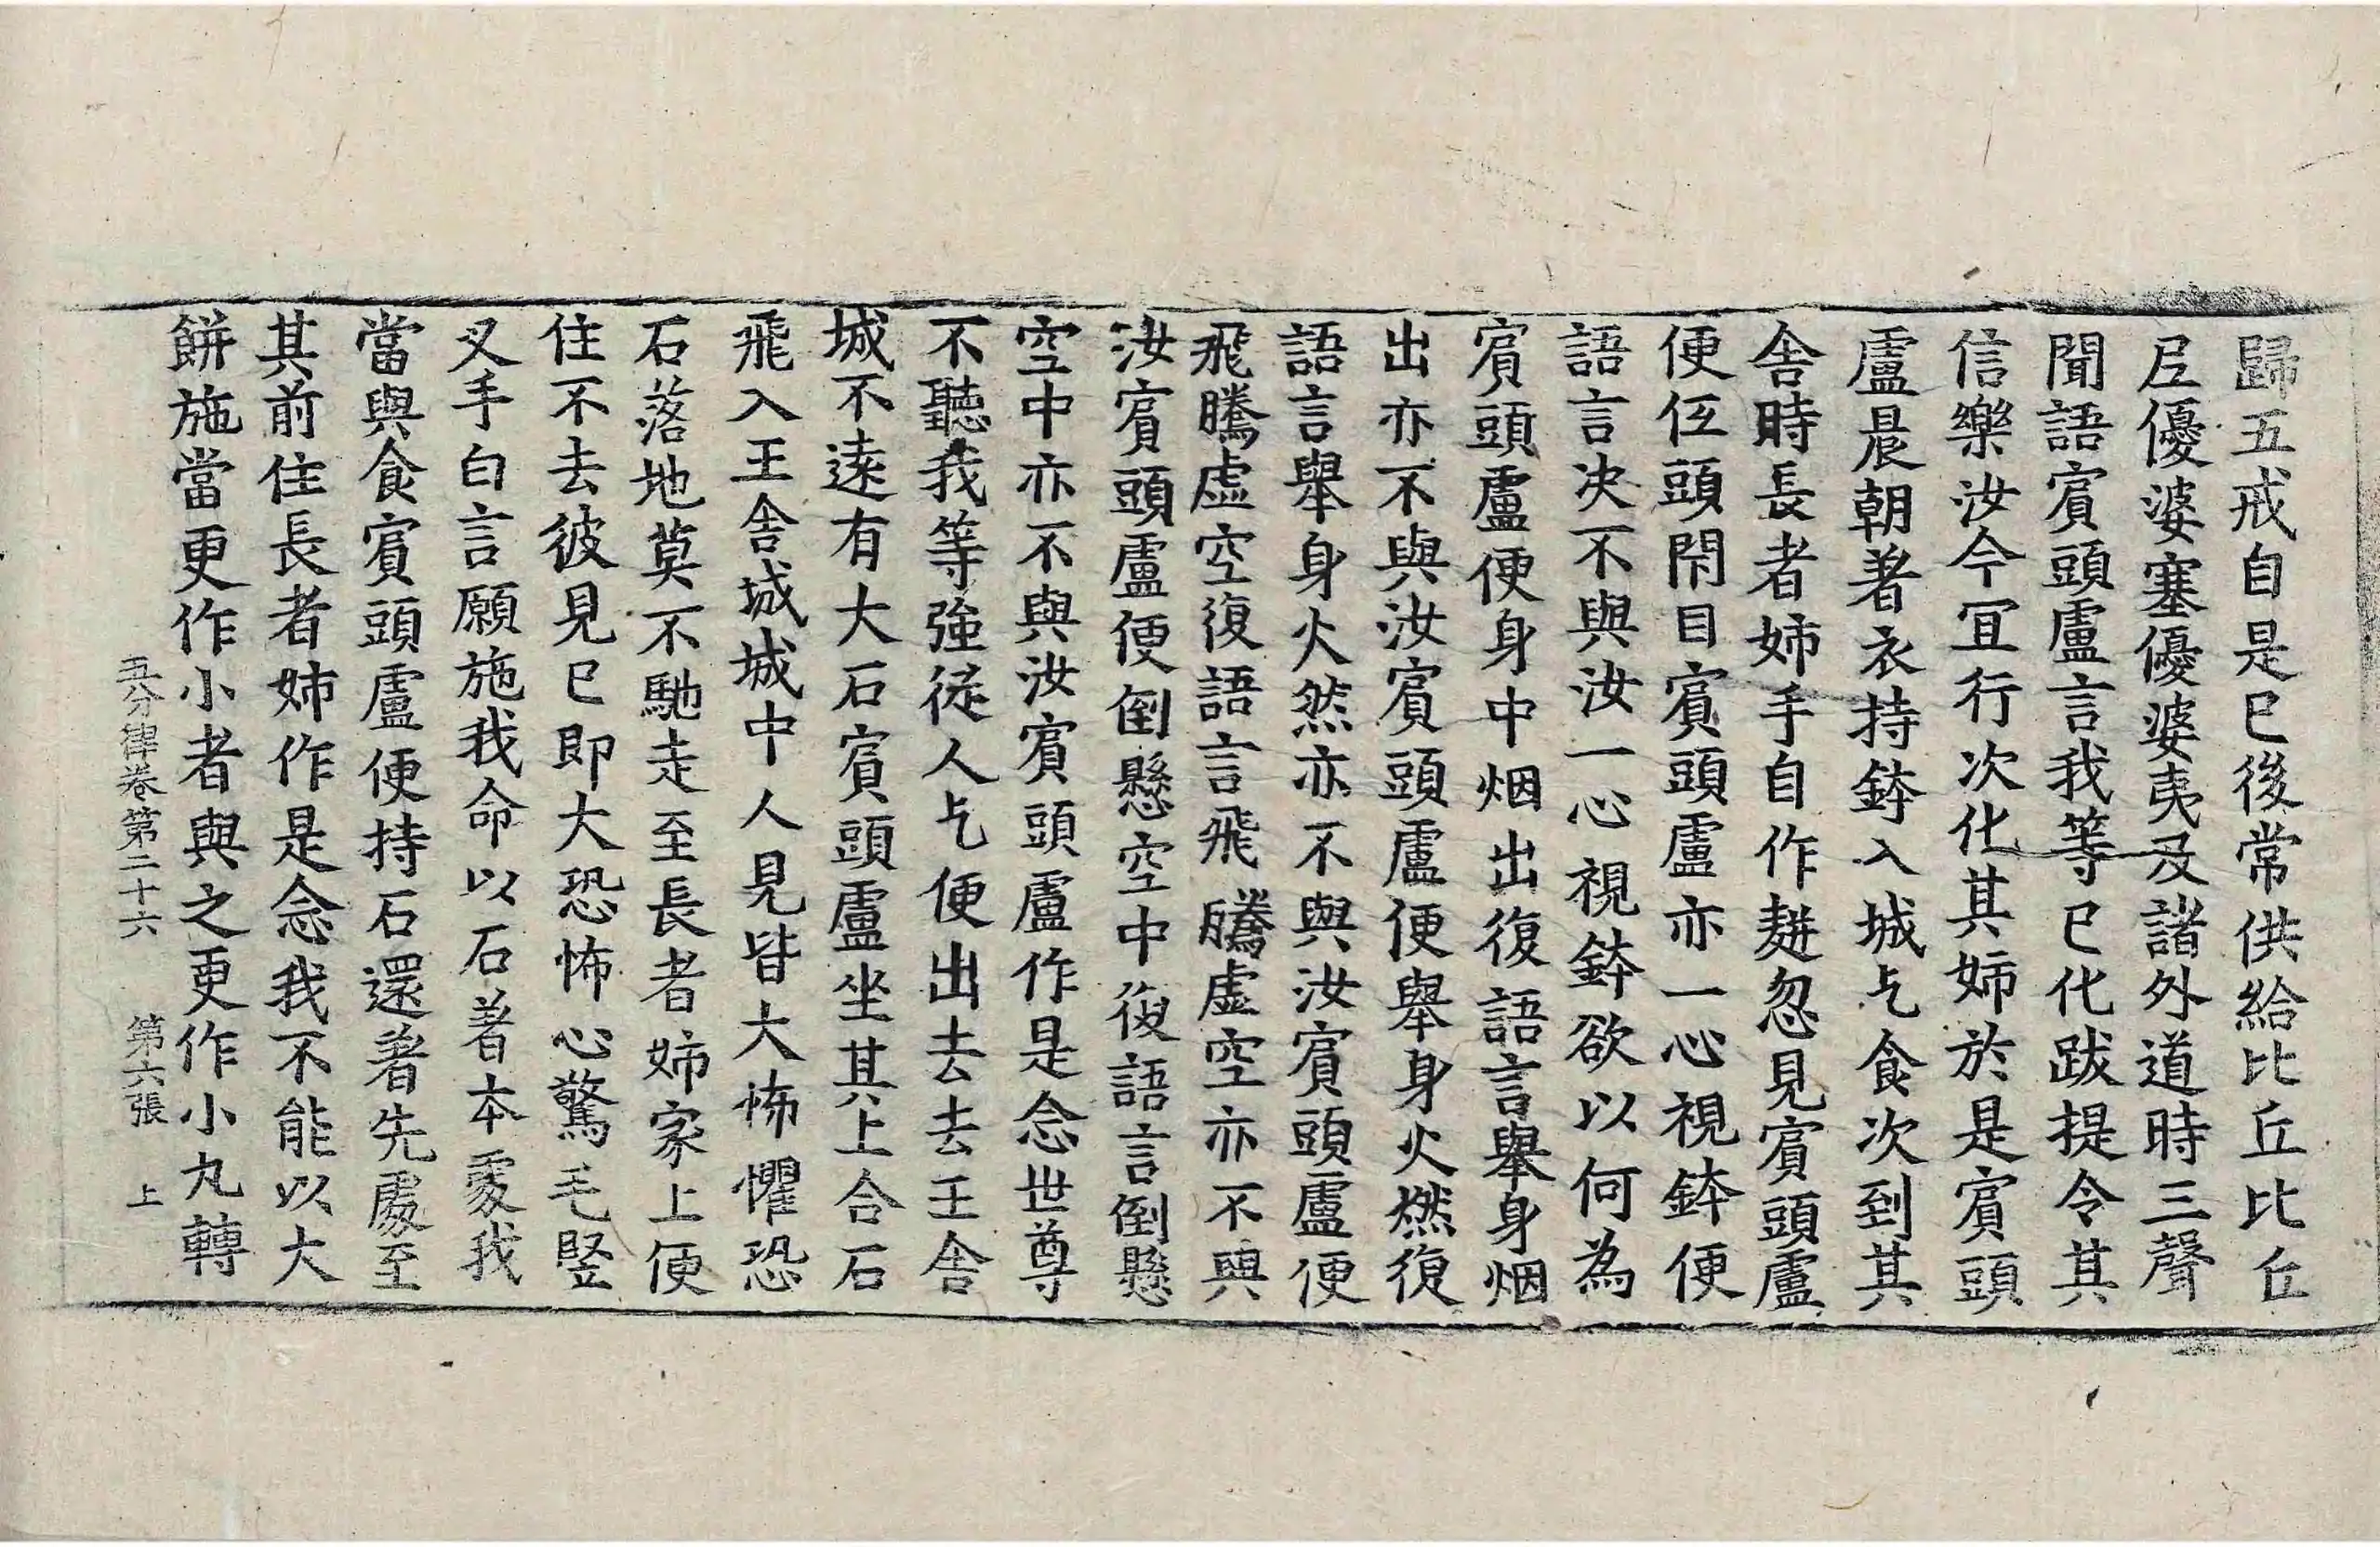 歸五戒自是已後常供給比丘比丘
尼優婆塞優婆夷及諸外道時三聲
聞語賓頭盧言我等已化跋提令其
信樂汝今宜行次化其姉於是賓頭
盧晨朝著衣持鉢入城乞食次到其
舍時長者姉手自作麨忽見賓頭盧
便低頭閇目賓頭盧亦一心視鉢便
語言决不與汝一心視鉢欲以何為
賓頭盧便身中烟出復語言舉身烟
出亦不與汝賓頭盧便舉身火燃復
語言舉身火然亦不與汝賓頭盧便
飛騰虛空復語言飛騰虛空亦不與
汝賓頭盧便倒懸空中復語言倒懸
空中亦不與汝賓頭盧作是念世尊
不聽我等強從人乞便出去去王舍
城不遠有大石賓頭盧坐其上合石
飛入王舍城城中人見皆大怖懼恐
石落地莫不馳走至長者姉家上便
住不去彼見已即大恐怖心驚毛竪
叉手白言願施我命以石著本處我
當與食賓頭盧便持石還著先處至
其前住長者姉作是念我不能以大
餅施當更作小者與之更作小丸轉
五分律卷第二十六 第六張 上